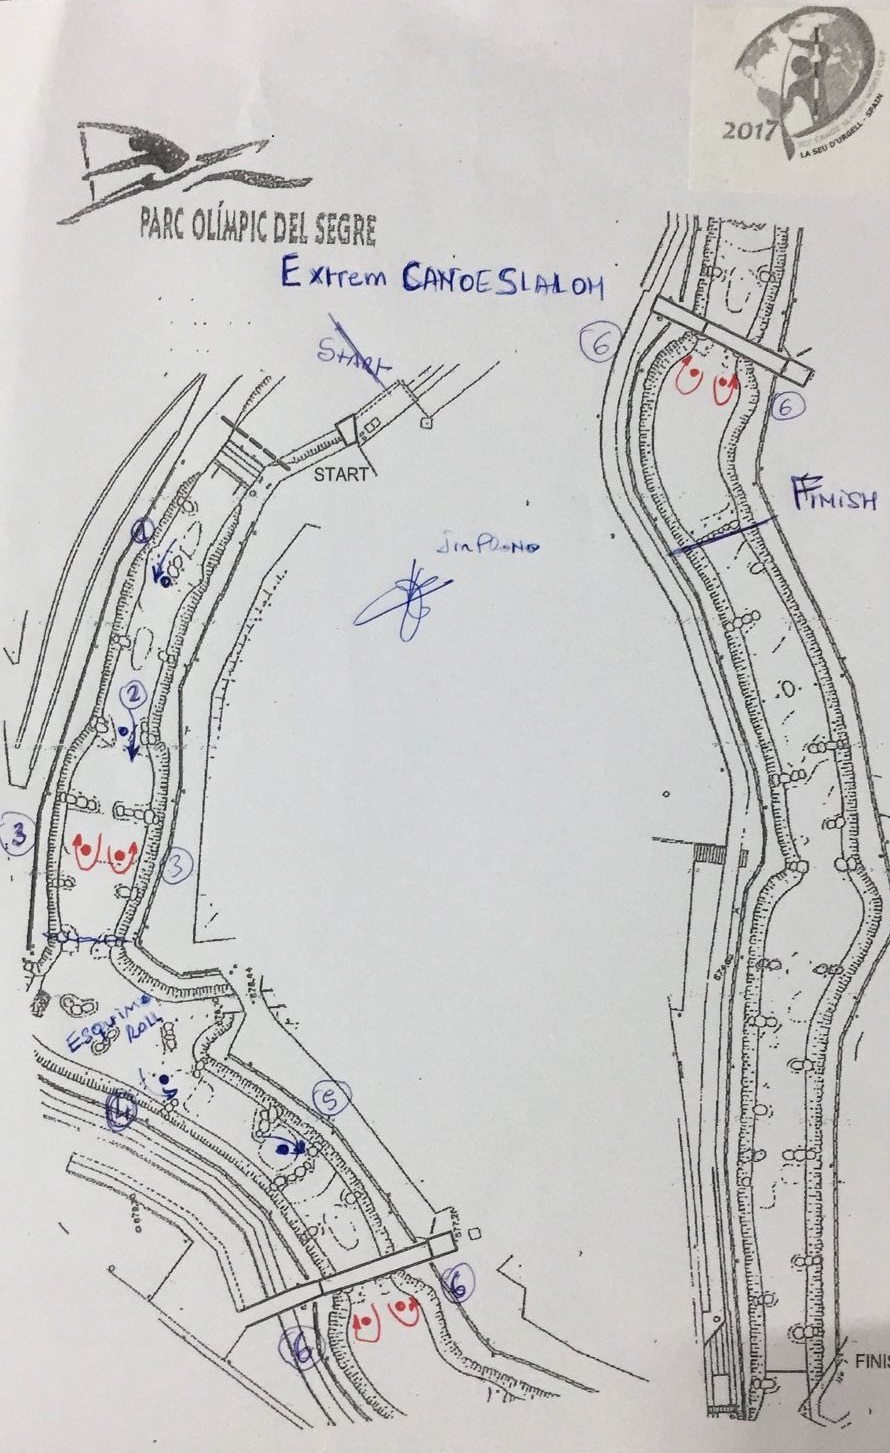 2017
LA SEU D'URGELL - SPAIN
PARC OLÍMPIC DEL SEGRE
Extrem CANOE SLALOM
START
START
1
2
3
3
ESQUIMO
ROLL
4
5
6
6
6
6
FINISH
FINIS